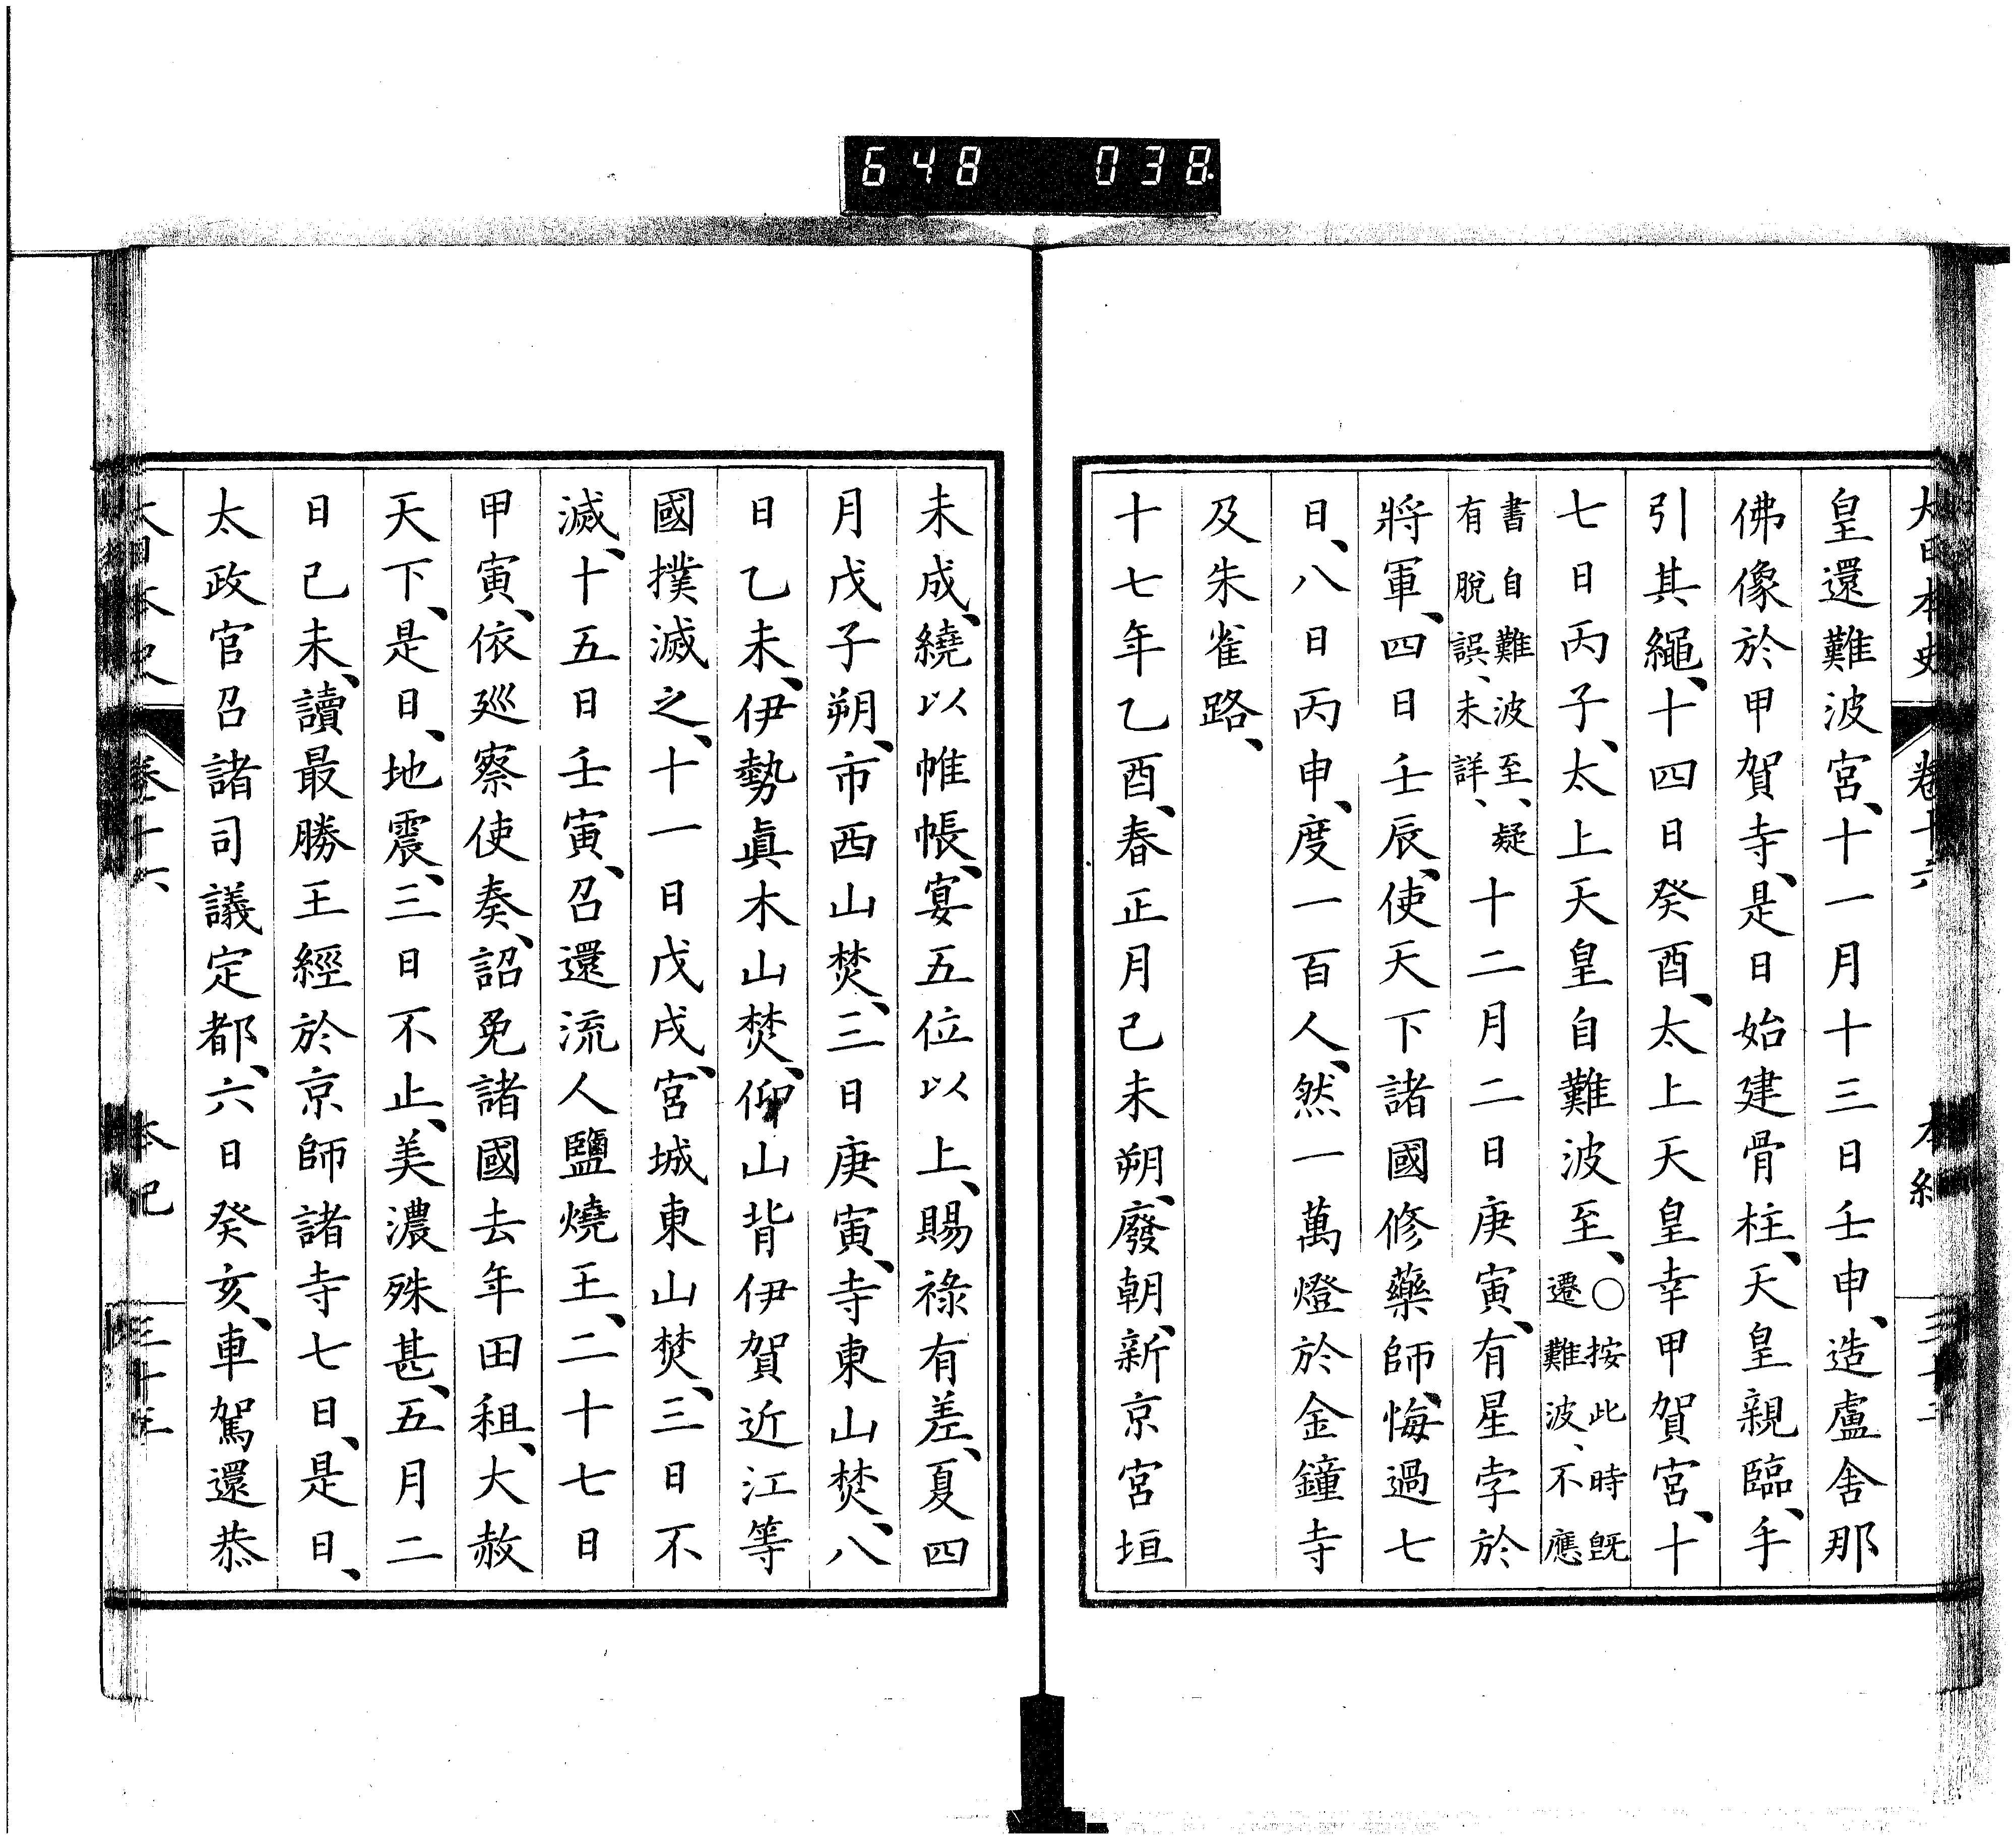 648 038
大日本史 卷十六 本紀
皇還難波宮、十一月十三日壬申、造盧舍那
佛像於甲賀寺、是日始建骨柱、天皇親臨、手
引其繩、十四日癸酉、太上天皇幸甲賀宮、十
七日丙子、太上天皇自難波至、○按此時既遷難波、不應
書自難波至、疑有脫誤、未詳、十二月二日庚寅、有星孛於
將軍、四日壬辰、使天下諸國修藥師、悔過七
日、八日丙申、度一百人、然一萬燈於金鐘寺
及朱雀路、
十七年乙酉、春正月己未朔、廢朝、新京宮垣
未成、繞以帷帳、宴五位以上、賜祿有差、夏四
月戊子朔、市西山焚、三日庚寅、寺東山焚、八
日乙未、伊勢眞木山焚、仰山背伊賀近江等
國撲滅之、十一日戊戌、宮城東山焚、三日不
滅、十五日壬寅、召還流人鹽燒王、二十七日
甲寅、依巡察使奏、詔免諸國去年田租、大赦
天下、是日、地震、三日不止、美濃殊甚、五月二
日己未、讀最勝王經於京師諸寺七日、是日、
太政官召諸司議定都、六日癸亥、車駕還恭
大日本史 卷十六 本紀 三十五